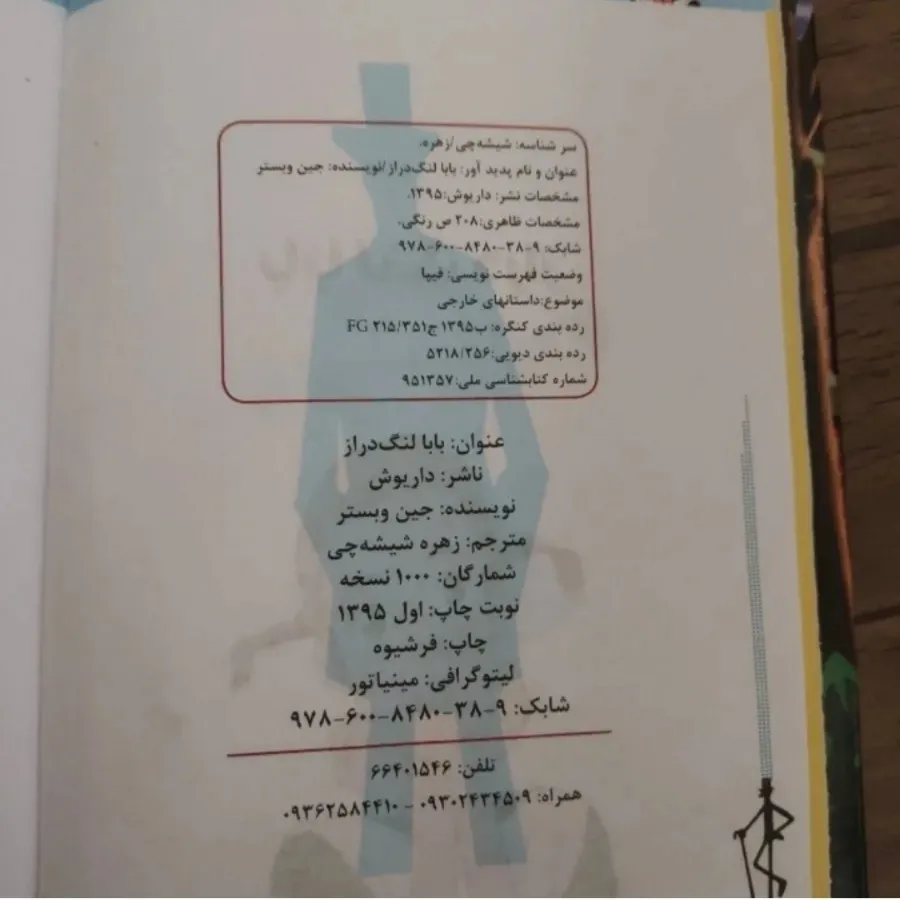 سر شناسه: شیشه‌چی/زهره.
عنوان و نام پدید آور: بابا لنگ‌دراز/نویسنده: جین وبستر
مشخصات نشر: داریوش:۱۳۹۵.
مشخصات ظاهری:۲۰۸ ص رنگی.
شابک: ۹-۳۸-۸۴۸۰-۶۰۰-۹۷۸
وضعیت فهرست نویسی: فیپا
موضوع:داستانهای خارجی
رده بندی کنگره: ب۱۳۹۵ ج۲۱۵/۳۵۱ FG
رده بندی دیویی:۵۲۱۸/۲۵۶
شماره کتابشناسی ملی:۹۵۱۳۵۷
عنوان: بابا لنگ‌دراز
ناشر: داریوش
نویسنده: جین وبستر
مترجم: زهره شیشه‌چی
شمارگان: ۱۰۰۰ نسخه
نوبت چاپ: اول ۱۳۹۵
چاپ: فرشیوه
لیتوگرافی: مینیاتور
شابک: ۹-۳۸-۸۴۸۰-۶۰۰-۹۷۸
تلفن: ۶۶۴۰۱۵۴۶
همراه: ۰۹۳۰۲۴۳۴۵۰۹ - ۰۹۳۶۲۵۸۴۴۱۰